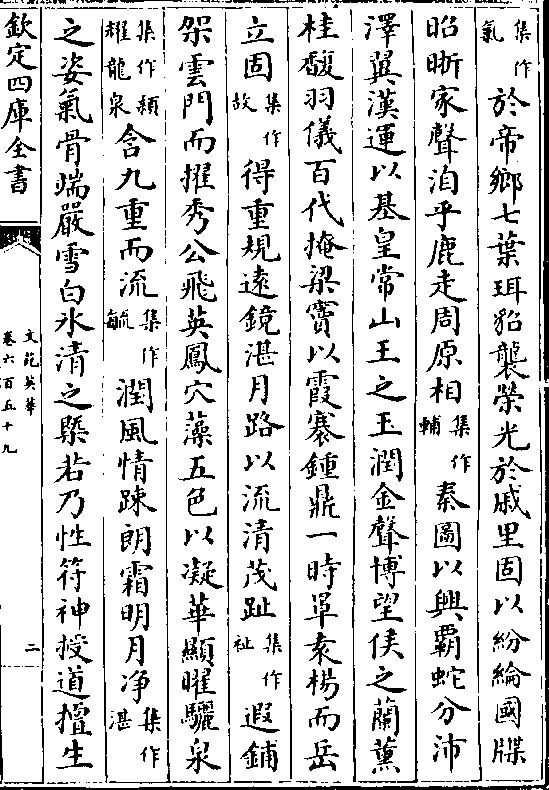 集作氣於帝鄉七葉珥貂襲榮光於戚里固以紛綸國牒
昭晣家聲洎乎鹿走周原相集作輔秦圖以興霸蛇分沛
澤翼漢運以基皇常山王之玉潤金聲博望侯之蘭薰
桂馥羽儀百代掩梁竇以霞褰鍾鼎一時罩袁楊而岳
立固集作故得重規遠鏡湛月路以流清茂趾集作祉遐鋪
架雲門而擢秀公飛英鳳穴藻五色以凝華顯曜驪泉
集作頴耀龍泉含九重而流集作毓潤風情踈朗霜明月净集作湛
之姿氣骨端嚴雪白氷清之槩若乃性符神授道擅生
欽定四庫全書
文苑英華
卷六百五十九
二